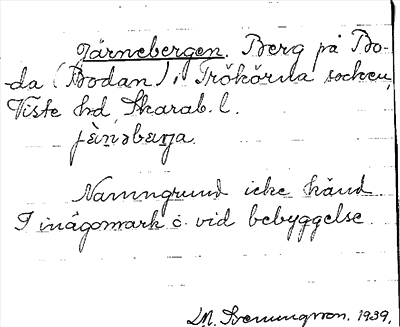 Järnebergen. Berg på Bo-
da (Bodan), i Trökörna socken,
Viste hd, Skarab. l.
jä̀ṇəbærja
Namngrund icke känd.
I inägomark o. vid bebyggelse.
1939.